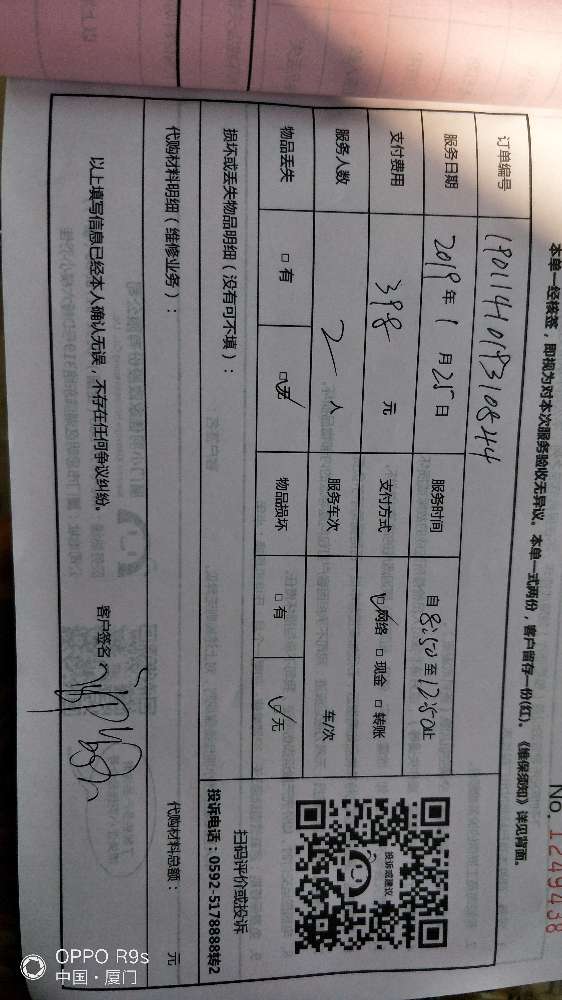 本单一经核签，即视为对本次服务验收无异议。本单一式两份，客户留存一份(红)。《维保须知》详见背面。
No. 1249438
订单编号 1901141019310544
服务日期 2019年1月25日 服务时间 自8:50至12:50止
支付费用 398 元 支付方式 ☑网络 □现金 □转账
服务人数 2人 服务车次 车/次
物品丢失 □有 ☑无 物品损坏 □有 ☑无
投诉或建议
扫码评价或投诉
投诉电话：0592-5178888转2
损坏或丢失物品明细（没有可不填）：
代购材料明细（维修业务）：
代购材料总额： 元
以上填写信息已经本人确认无误，不存在任何争议纠纷。
客户签名
OPPO R9s
中国·厦门